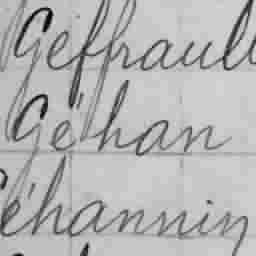 Geffraull
Géhan
éhannin